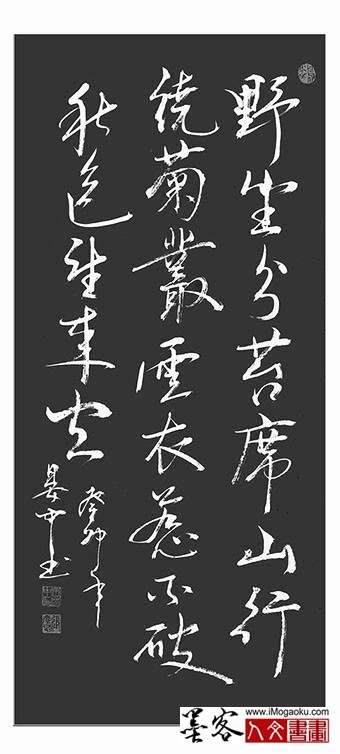 野坐分苔席山行
绕菊叢雲衣惹不破
秋色望来空
癸卯年
晏中书
墨客
www.iMogaoku.com
人文書畫